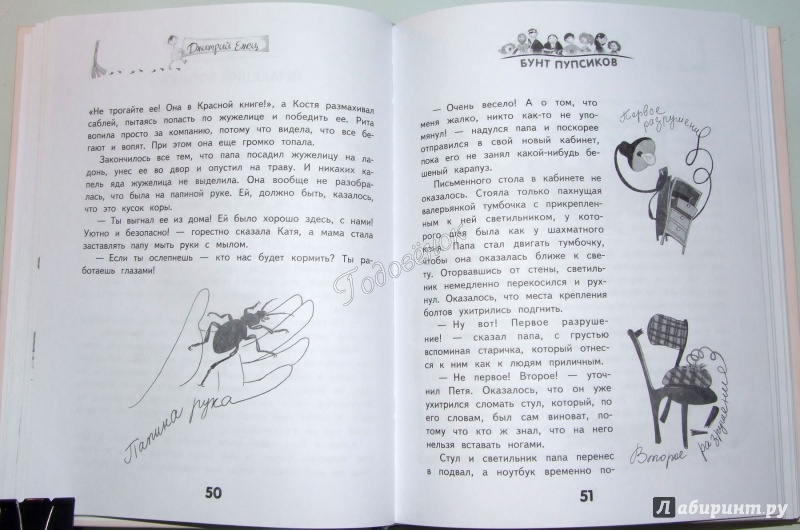 Дмитрий Емец
«Не трогайте ее! Она в Красной книге!», а Костя размахивал
саблей, пытаясь попасть по жужелице и победить ее. Рита
вопила просто за компанию, потому что видела, что все бе-
гают и вопят. При этом она еще громко топала.
Закончилось все тем, что папа посадил жужелицу на ла-
донь, унес ее во двор и опустил на траву. И никаких ка-
пель яда жужелица не выделила. Она вообще не разобра-
лась, что была на папиной руке. Ей, должно быть, казалось,
что это кусок коры.
— Ты выгнал ее из дома! Ей было хорошо здесь, с нами!
Уютно и безопасно! — горестно сказала Катя, а мама стала
заставлять папу мыть руки с мылом.
— Если ты ослепнешь — кто нас будет кормить? Ты ра-
ботаешь глазами!
Папина рука
50
БУНТ ПУПСИКОВ
— Очень весело! А о том, что
меня жалко, никто как-то не упо-
мянул! — надулся папа и поскорее
отправился в свой новый кабинет,
пока его не занял какой-нибудь бе-
шеный карапуз.
Письменного стола в кабинете не
оказалось. Стояла только пахнущая
валерьянкой тумбочка с прикреплен-
ным к ней светильником, у кото-
рого шея была как у шахматного
коня. Папа стал двигать тумбочку,
чтобы она оказалась ближе к све-
ту. Оторвавшись от стены, светиль-
ник немедленно перекосился и рух-
нул. Оказалось, что места крепления
болтов ухитрились подгнить.
— Ну вот! Первое разруше-
ние! — сказал папа, с грустью
вспоминая старичка, который отнес-
ся к ним как к людям приличным.
— Не первое! Второе! — уточ-
нил Петя. Оказалось, что он уже
ухитрился сломать стул, который, по
его словам, был сам виноват, по-
тому что кто ж знал, что на него
нельзя вставать ногами.
Стул и светильник папа перенес
в подвал, а ноутбук временно по-
Первое
разрушение
Второе разрушение
51
Годовёнок
Лабиринт.ру